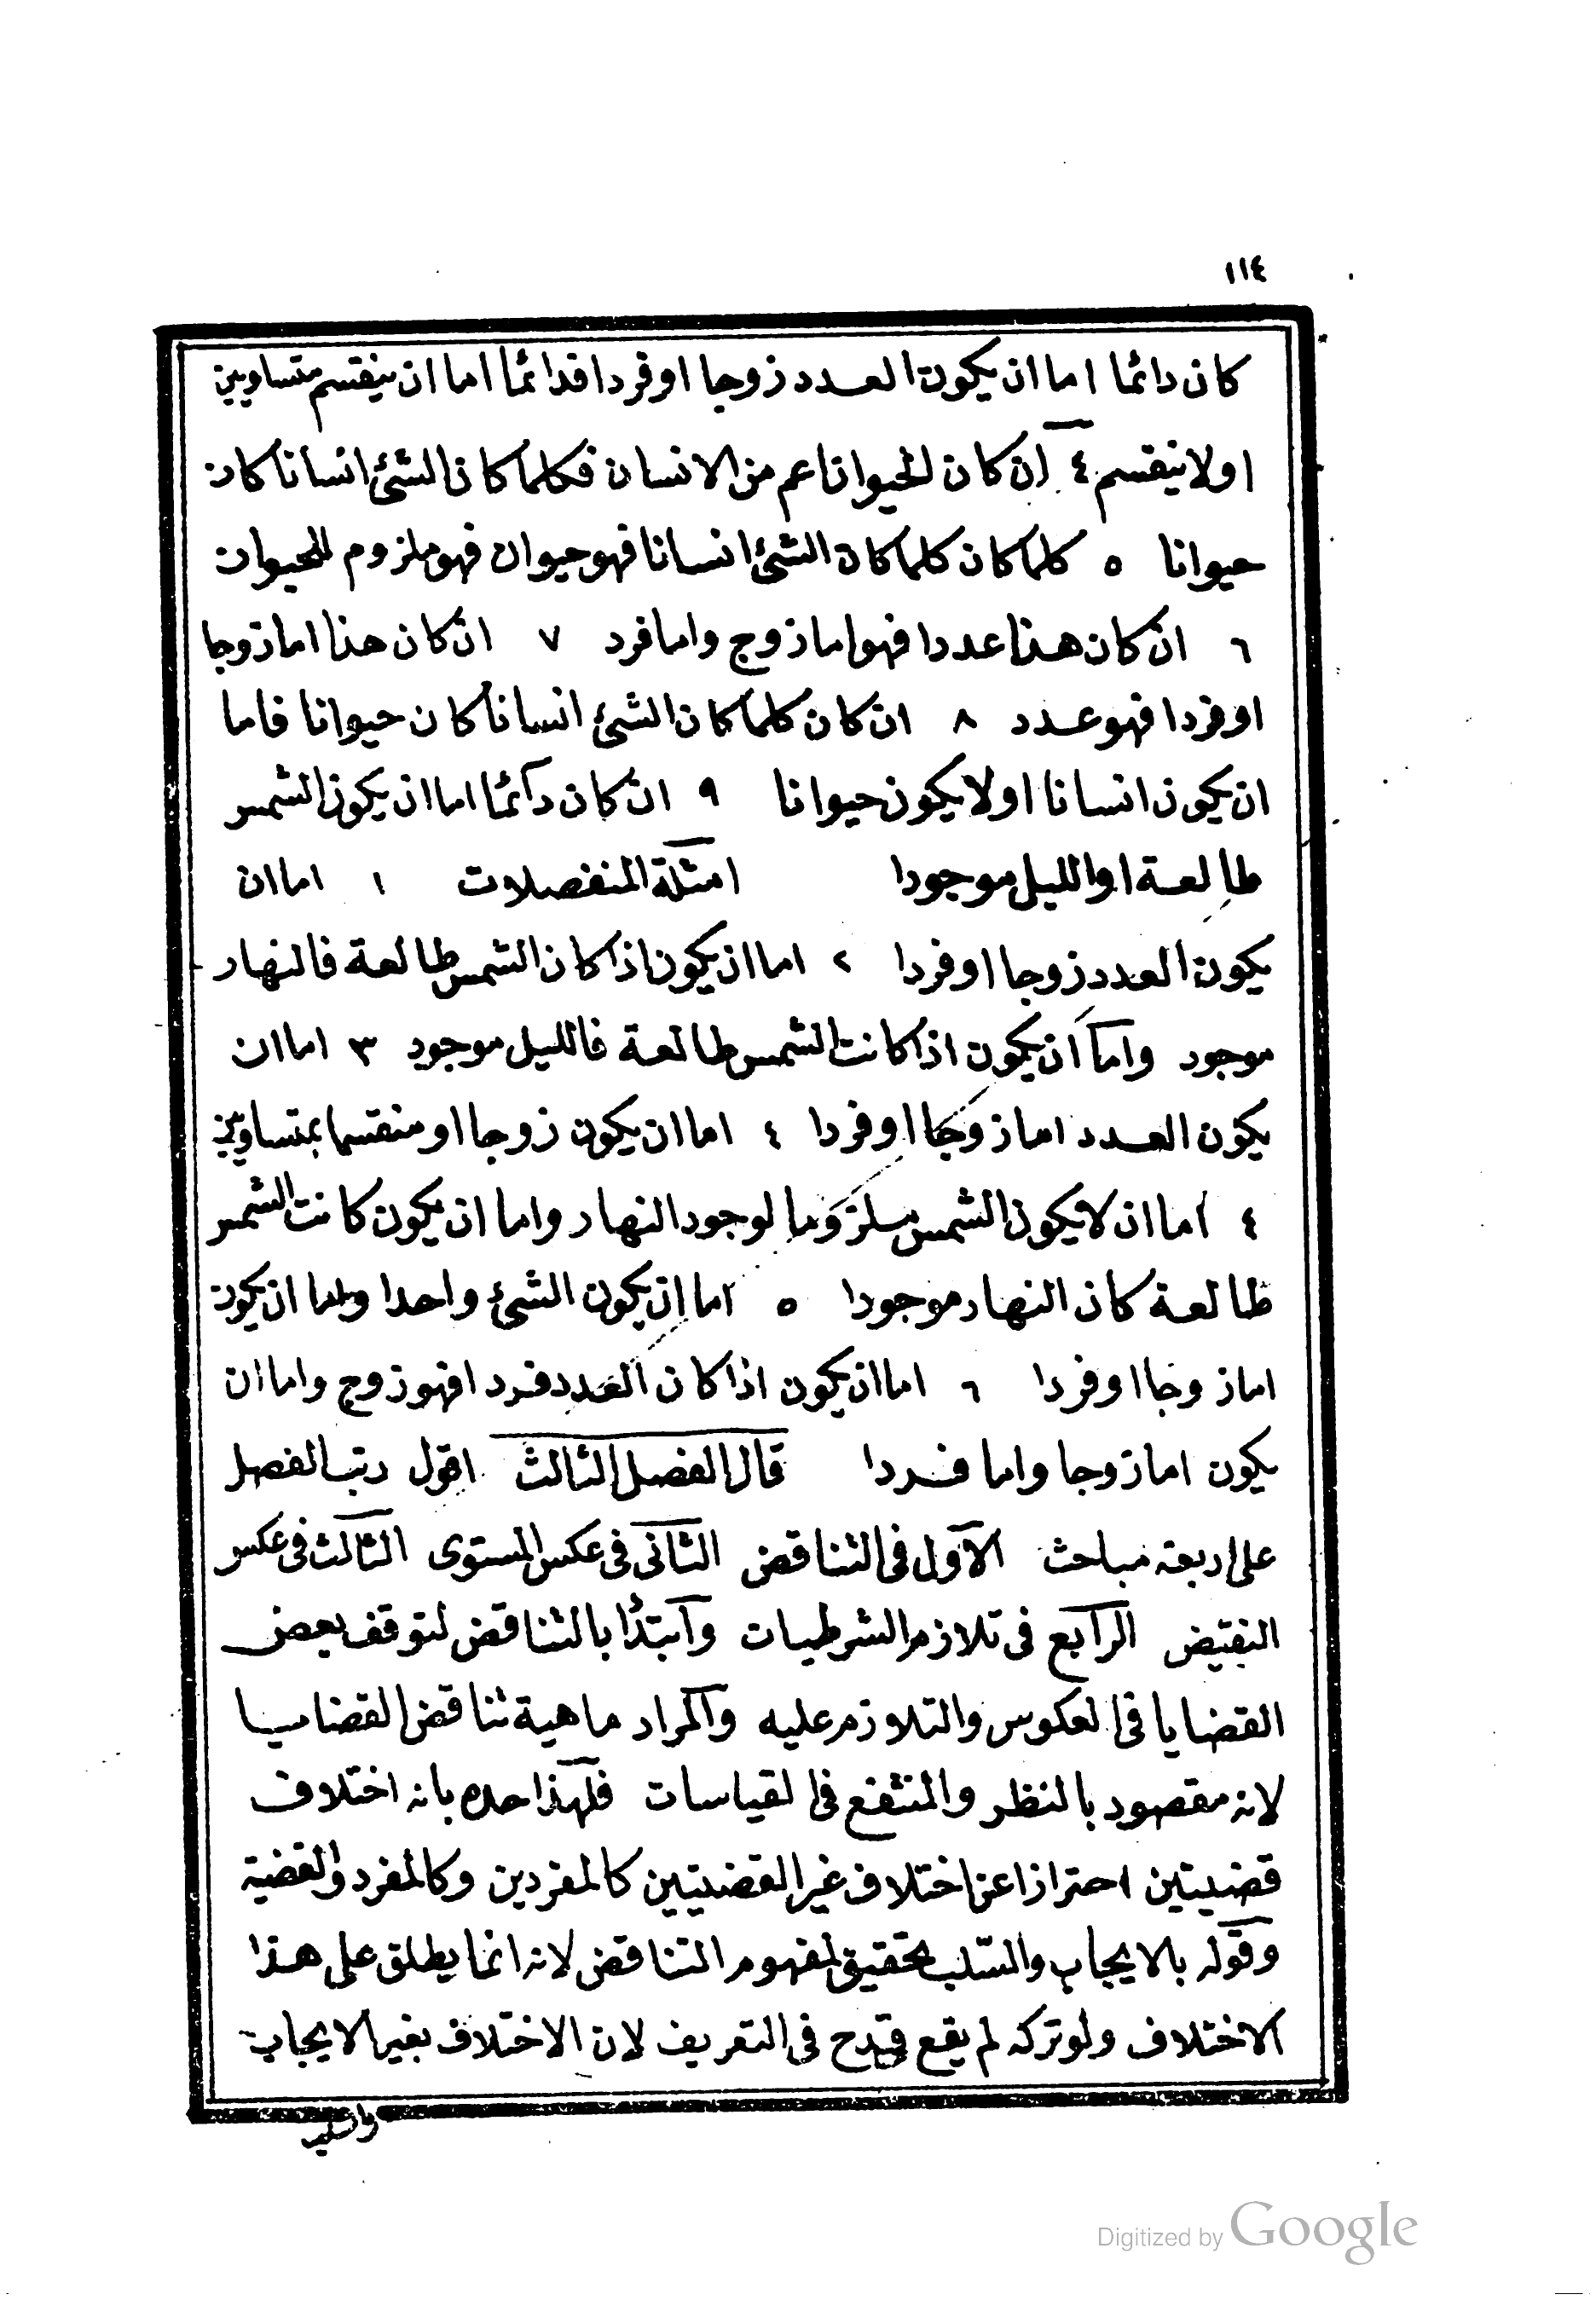 ١١٤
كان دائما اما ان يكون العدد زوجا او فردا فدائما اما ان ينقسم بتساويين
اولا ينقسم ٤ ان كان الحيوان اعم من الانسان فكلما كان الشئ انسانا كان
حيوانا ٥ كلما كان كلما كان الشئ انسانا فهو حيوان فهو ملزوم للحيوان
٦ ان كان هذا عددا فهو اما زوج واما فرد ٧ ان كان هذا اما زوجا
او فردا فهو عدد ٨ ان كان كلما كان الشئ انسانا كان حيوانا فاما
ان يكون انسانا او لا يكون حيوانا ٩ ان كان دائما اما ان يكون الشمس
طالعة او الليل موجودا امثلة المنفصلات ١ اما ان
يكون العدد زوجا او فردا ٢ اما ان يكون اذا كان الشمس طالعة فالنهار
موجود واما ان يكون اذا كانت الشمس طالعة فالليل موجود ٣ اما ان
يكون العدد اما زوجا او فردا ٤ اما ان يكون زوجا او منقسما بمتساويين
٤ اما ان لا يكون الشمس ملزوما لوجود النهار واما ان يكون كانت الشمس
طالعة كان النهار موجودا ٥ اما ان يكون الشئ واحدا واما ان يكون
اما زوجا او فردا ٦ اما ان يكون اذا كان العدد فردا فهو زوج واما ان
يكون اما زوجا واما فردا قال الفصل الثالث اقول رتب الفصل
على اربعة مباحث الاول في التناقض الثاني في عكس المستوى الثالث في عكس
النقيض الرابع في تلازم الشرطيات وابتدأ بالتناقض لتوقف بعض
القضايا في العكوس والتلازم عليه والمراد ماهية تناقض القضايا
لانه مقصود بالنظر والمنتفع في القياسات فلهذا حده بانه اختلاف
قضيتين احترازا عن اختلاف غير القضيتين كالمفردين وكالمفرد والقضية
وقوله بالايجاب والسلب تحقيق لمفهوم التناقض لانه انما يطلق على هذا
الاختلاف ولو تركه لم يقع قدح في التعريف لان الاختلاف بغير الايجاب
والسلب
Digitized by Google